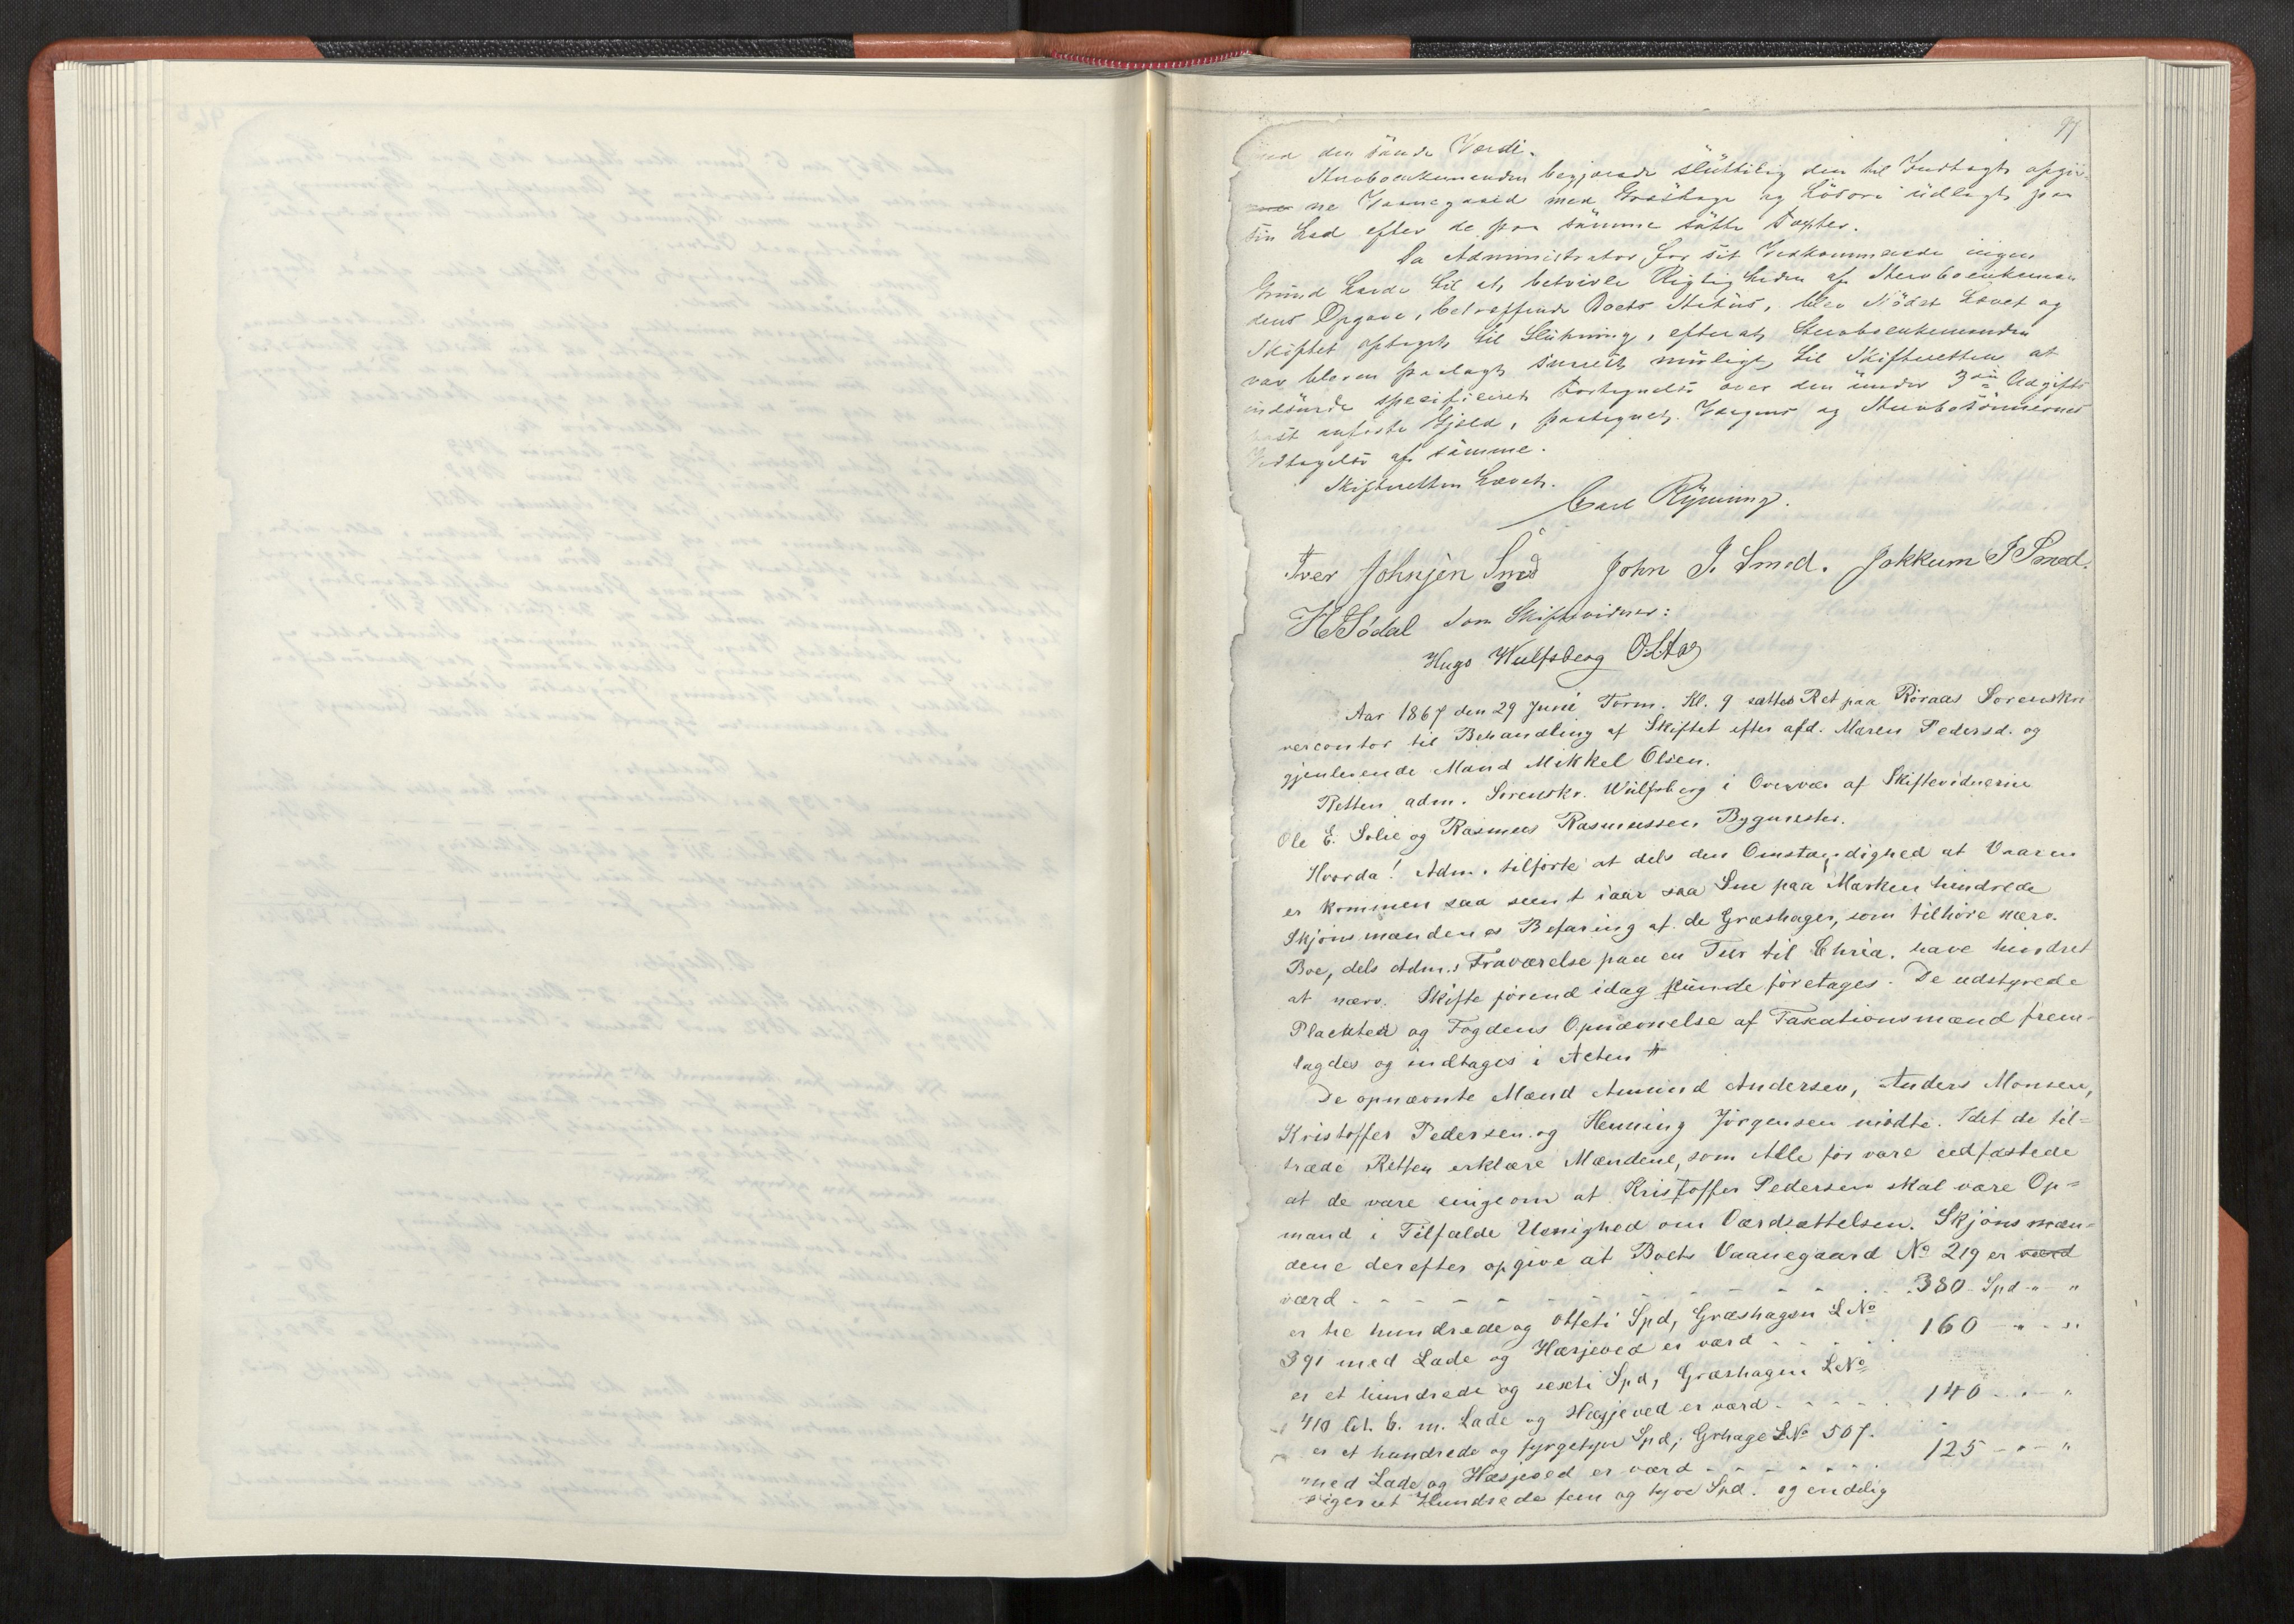 97
den sande Værdi.
Sterboenkemanden begjærede sluttelig den til Indtægt opgiv-
ne Vaanegaard med Græshage og Løsøre udlagt paa
sin Lod efter de paa samme satte Taxter.
Da Administrator for sit Vedkommende ingen
Grund havde til at betvivle Rigtigheden af Sterboenkeman
dens Opgave, betræffende Boets Status, blev Mødet hævet og
Skiftet optaget til Slutning, efterat Sterboenkemanden
var bleven paalagt snarest muligt til Skifteretten at
indsende specificeret Fortegnelse over den under 3die Udgifts
post anførte Gjæld, paategnet Værgens og Sterbosønnernes
Vedtagelse af samme.
Skifteretten hævet.
Carl Rynning.
Iver Johnsen Smed John I. Smed. Jokkum I Smed.
H Sødal som Skiftevidner:
Hugo Wulfsberg
Aar 1867 den 29 Juni Form. Kl. 9 sattes Ret paa Röraas Sorenskri
vercontor til Behandling af Skiftet efter afd. Maren Pedersd. og
gjenlevende Mand Mikkel Olsen.
Retten adm. Sorenskr. Wulfsberg i Overvær af Skiftevidnerne
Ole E. Solie og Rasmus Rasmussen Bygmester.
Hvorda! Adm. tilførte at dels den Omstændighed at Vaaren
er kommen saa seent iaar saa Sne paa Marken hindrede
Skjønsmændenes Befaring af de Græshager, som tilhøre nærv.
Boe, dels Adm.s Fraværelse paa en Tur til Chria. have hindret
at nærv. Skifte førend idag kunde foretages. De udstyrede
Placater og Fogdens Opnævnelse af Taxationsmænd frem-
lagdes og indtages i Acten #
De opnævnte Mænd Amund Andersen, Anders Monsen,
Kristoffer Pedersen og Henning Jørgensen mødte. Idet de til-
træde Retten erklære Mændene, som Alle før vare eedfæstede
at de vare enige om at Kristoffer Pedersen skal være Op-
mand i Tilfælde Uenighed om Værdsættelsen. Skjønsmæn-
dene derefter opgive at Boets Vaanegaard No 219 er værd
værd - - - - - - - - - - 380 Spd " - "
er tre hundrede og otteti Spd, Græshagen L No
391 med Lade og Hæsjeved er værd - - - - 160 - " - "
er et hundrede og sexti Spd, Græshagen L No
410 lit. b. m. Lade og Hæsjeved er værd - - - - - 140 - " - "
er et hundrede og fyrgetyve Spd; Grhage L No 507.
med Lade og Hæsjeved er værd - - - - - - - 125 - " - "
siger eet Hundrede fem og tyve Spd. og endelig